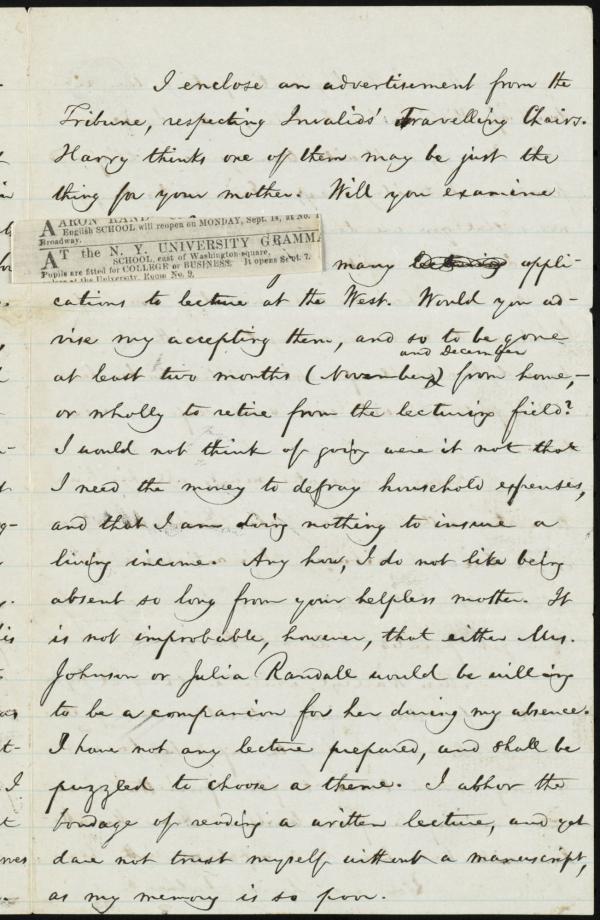 I enclose an advertisement from the
Tribune, respecting Invalids' Travelling Chairs.
Harry thinks one of them may be just the
thing for your mother. Will you examine
AARON RAND
English SCHOOL will reopen on MONDAY, Sept. 14, at No. 1
Broadway.
AT the N. Y. UNIVERSITY GRAMMA
SCHOOL, east of Washington-square,
Pupils are fitted for COLLEGE or BUSINESS. It opens Sept. 7.
at the University, Room No. 2.
many lecturing appli-
cations to lecture at the West. Would you ad-
vise my accepting them, and so to be gone
and December
at least two months (November) from home,—
or wholly to retire from the lecturing field?
I would not think of going were it not that
I need the money to defray household expenses,
and that I am doing nothing to insure a
living income. Any how, I do not like being
absent so long from your helpless mother. It
is not improbable, however, that either Mrs.
Johnson or Julia Randall would be willing
to be a companion for her during my absence.
I have not any lecture prepared, and shall be
puzzled to choose a theme. I abhor the
bondage of reading a written lecture, and yet
dare not trust myself without a manuscript,
as my memory is so poor.